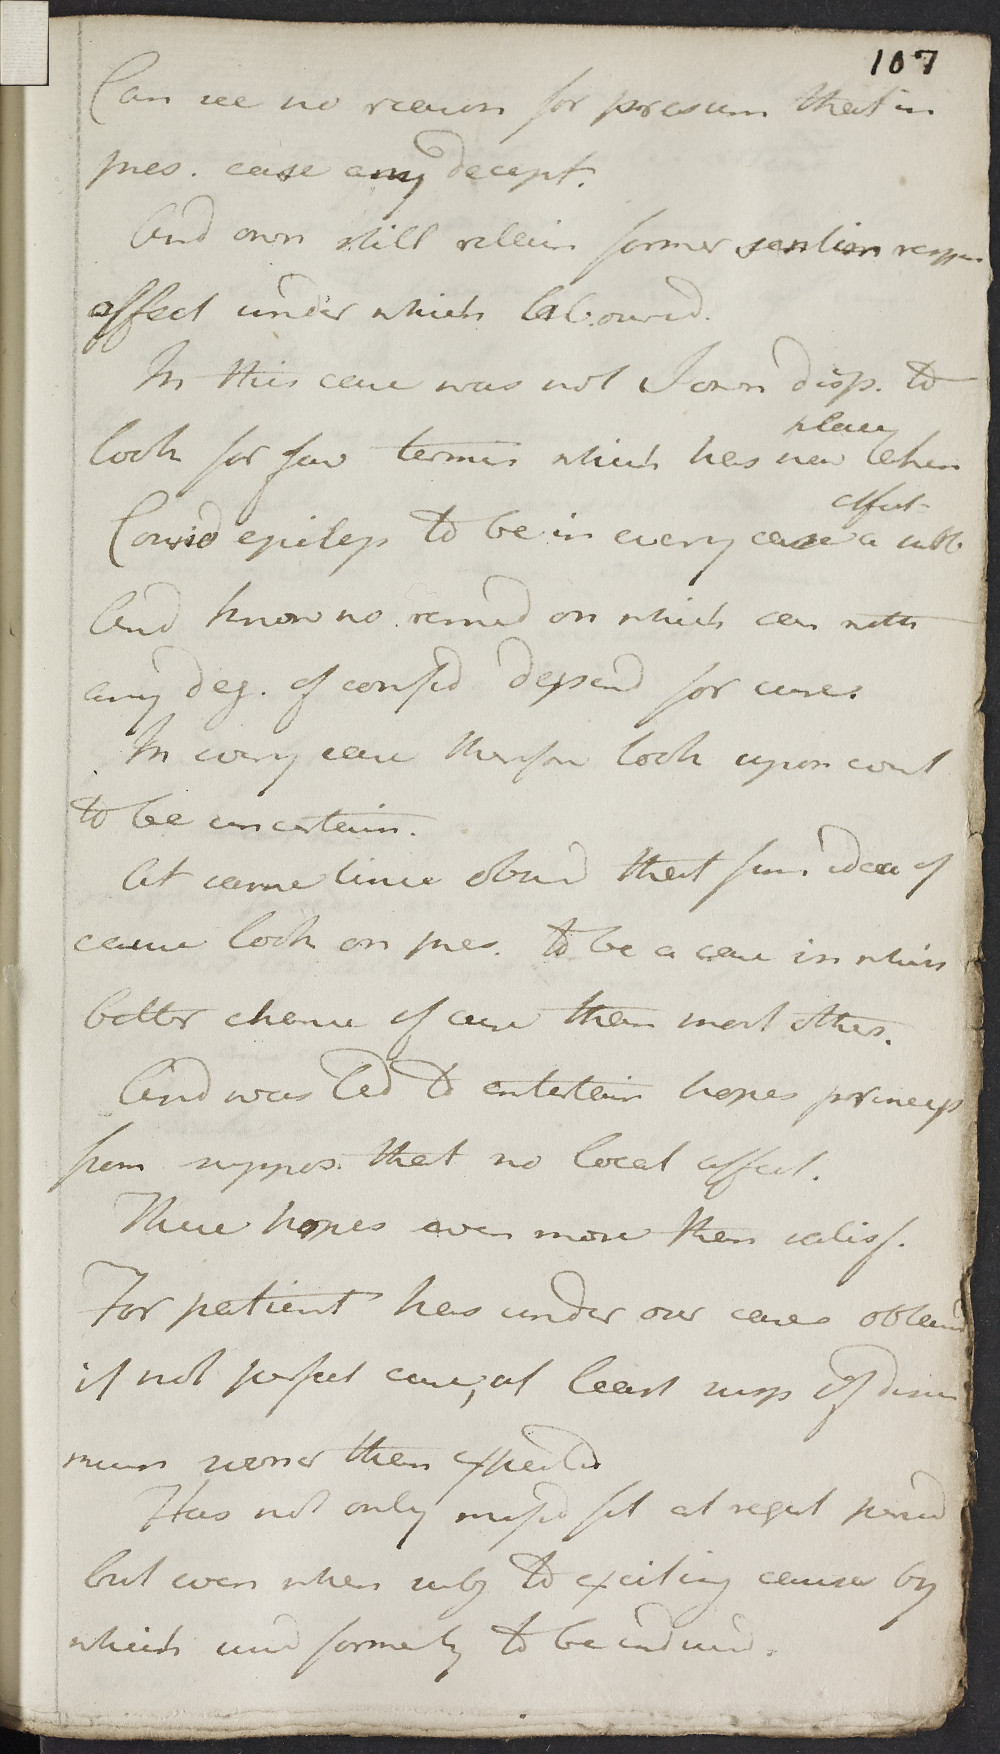 107
Can see no reason for presum that in
pres. case any decept.
And own still retain former sentim respec
affect under which laboured.
In this case was not I own disp. to
look for fav termin which has now taken
place
Consid epilep to be in every case a
And know no remed on which can with
any deg. of confid depend for cure.
In every case therefore look upon
to be uncertain.
At same time obser'd that from idea of
cause look on pres. to be a case in which
better chance of cure than most others.
And was led to entertain hopes princip
from suppos. that no local affect.
These hopes even more than satisf.
For patient has under our care obtaind
if not perfect cure, at least susp of
much sooner than expected
Has not only miss'd fit at regul period
but even when subj to exciting causes by
which used formerly to be induced.